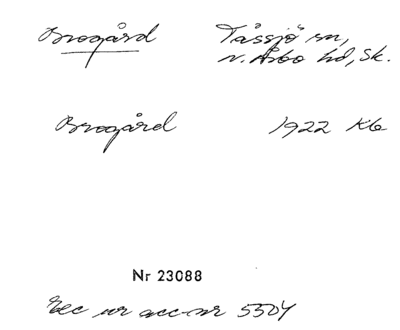 Brogård Tåssjö sn,
n. Åsbo hd, Sk.
Brogård 1922 Kb
Nr 23088
Exc ur acc-nr 5304